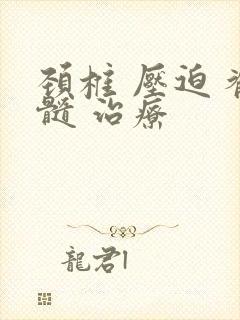 頚椎 壓迫 脊
髓 治療
龍君1